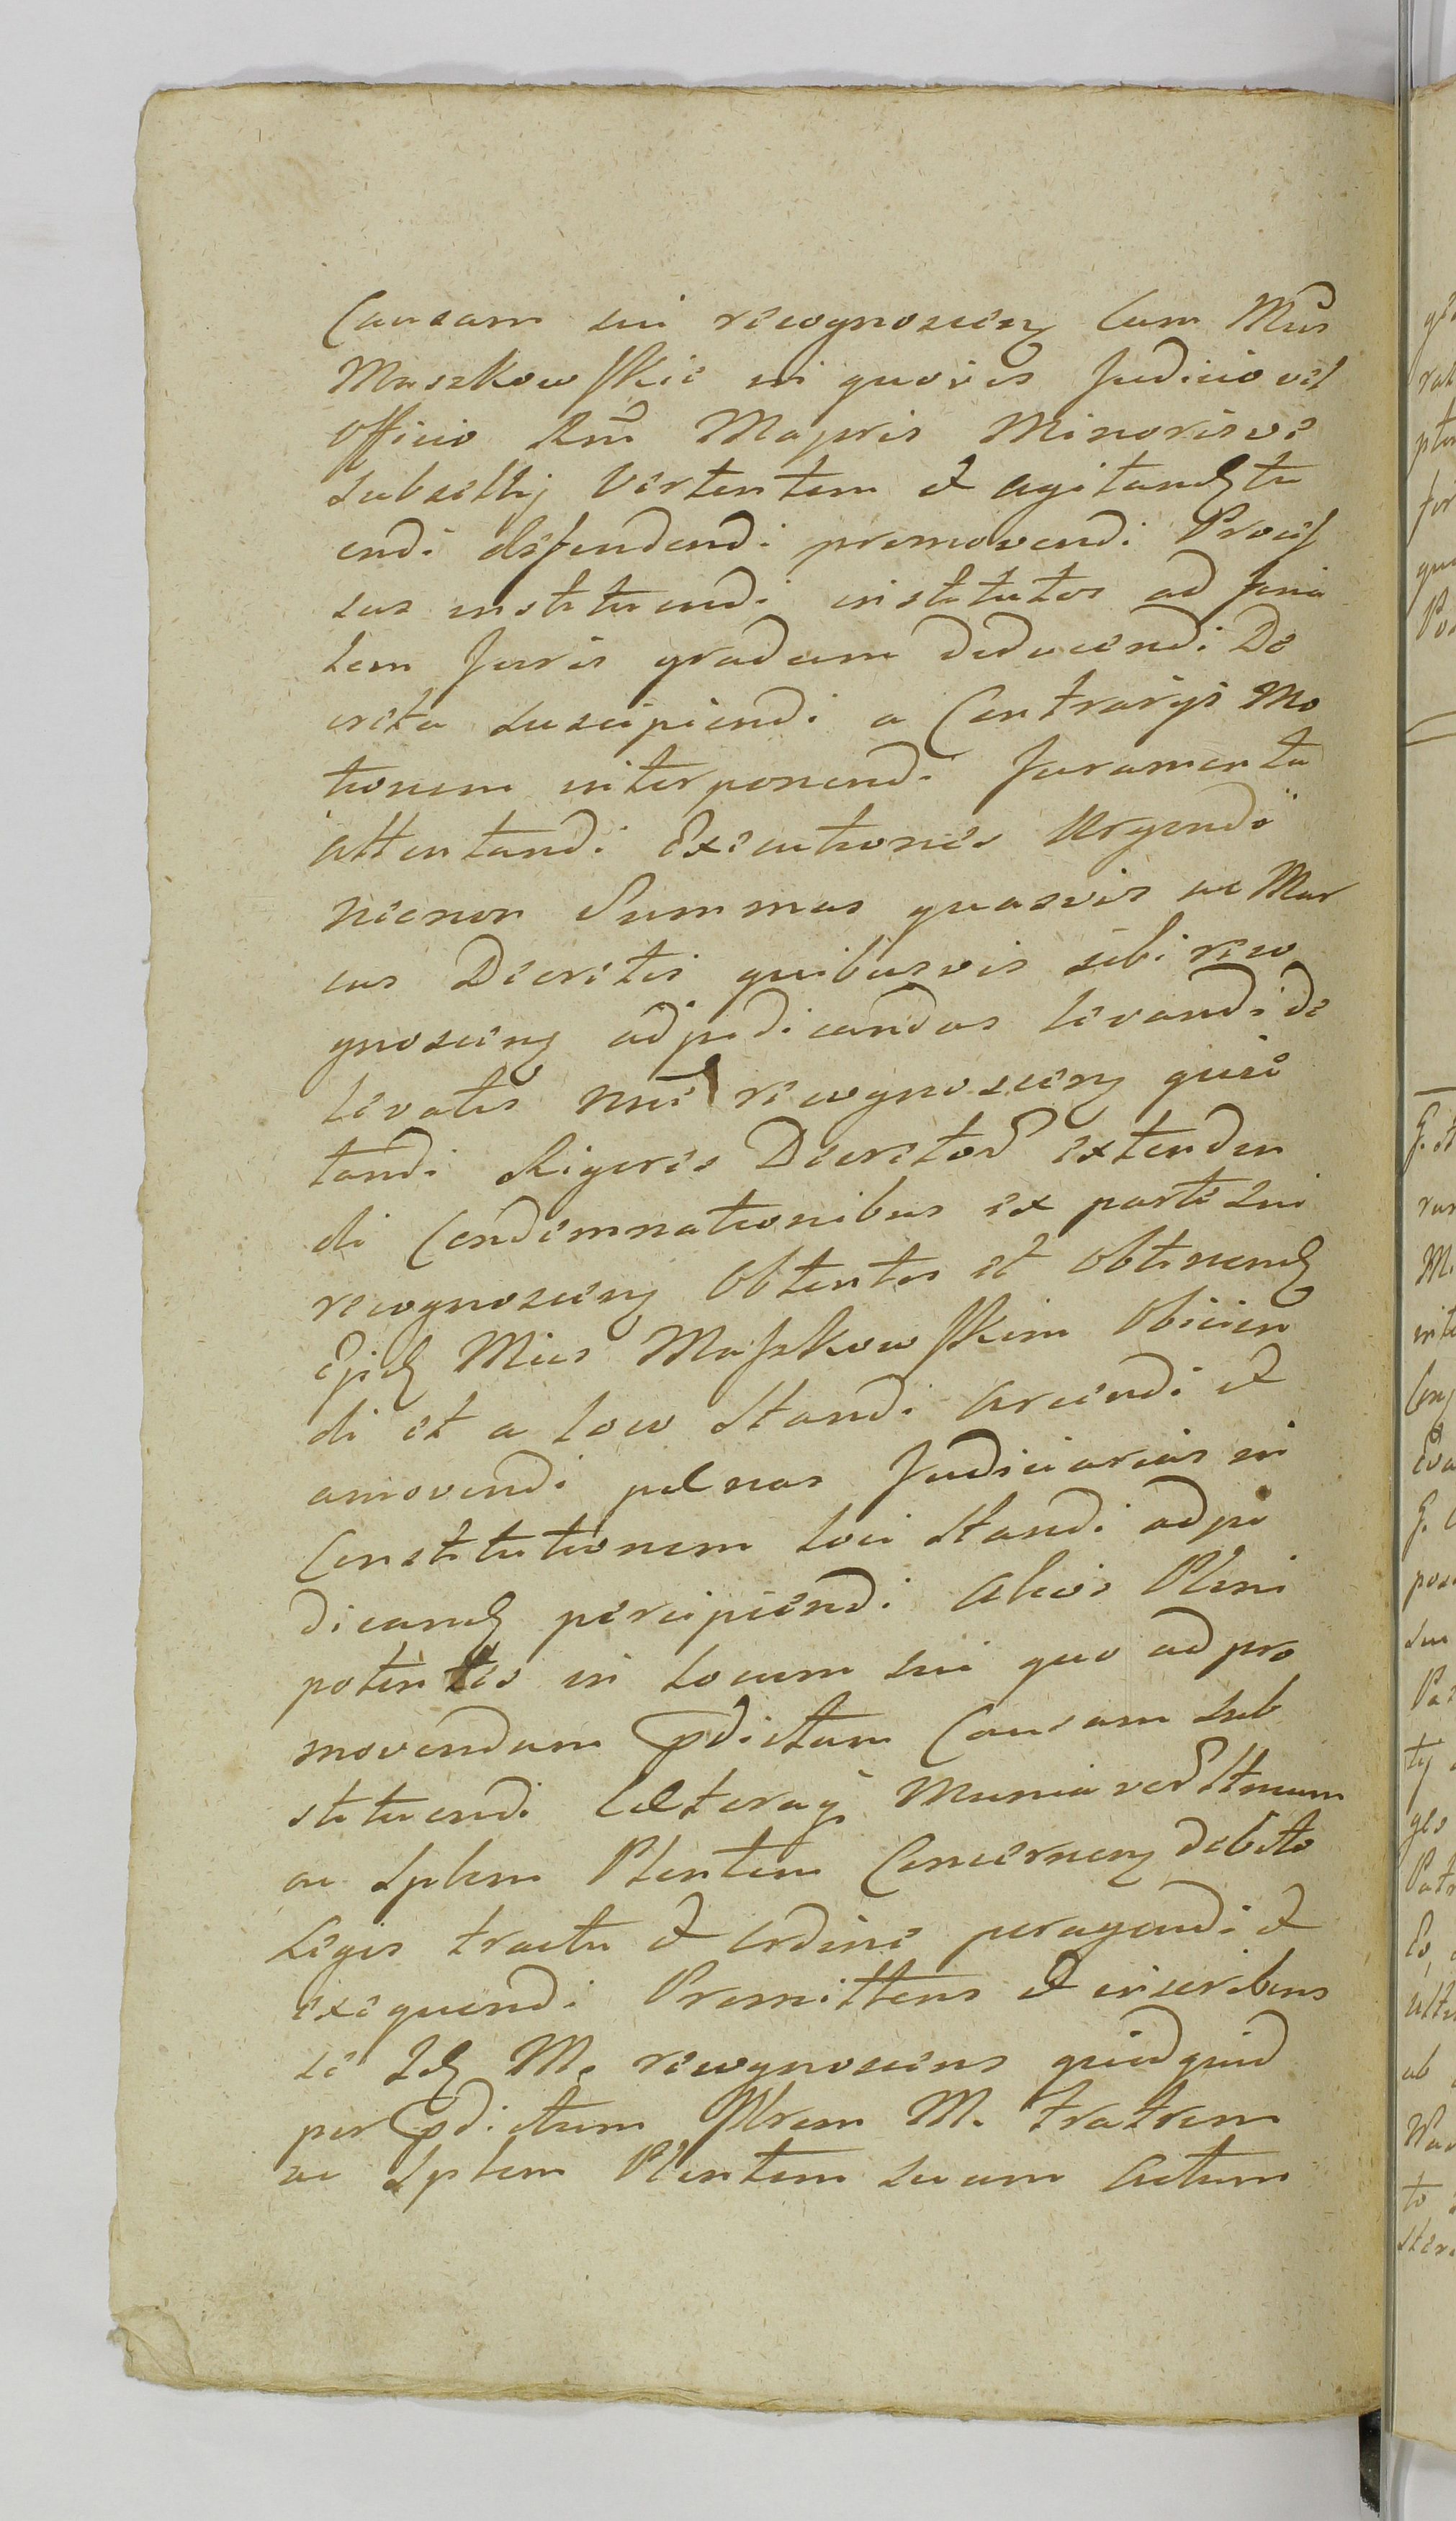 Causam sui recognoscen cum Mcis
Maszkowskie in quovis Judicio vel
Officio Rni Majoris Minorisve
Subsellij Vertentem et agitand tu
endi defendendi promovendi Proces
sus instituendi institutos ad fina
lem Juris gradum deducendi De
creta suscipiendi a Contrarijs Mo
tionem interponendi Juramenta
attentandi Executiones Urgendi
necnon Summas quasvis ac Mar
cas Decretis quibusvis sibi reco
gnoscen adjudicandas levandi de
levatis nne recognoscen quie
tandi Rigores Decretor extenden
di Condemnationibus ex parte sui
recognoscen obtentis et obtinend
Ejsd Mcis Maszkowskim Obicien
di et a loco Standi arcendi et
amovendi pænas Judiciarias in
Constitutionem loci Standi adju
dicand percipiendi alios Pleni
potentes in locum sui quo ad pro
movendum pdictam Causam sub
stituendi Cæteraq Munia ver Stnum
ac Splem Plentem Concernen debito
Legis tractu et ordine peragendi et
exequendi Promittens et inscribens
se Id M. recognoscens quidquid
per pdictum Fhrem M. Fratrem
ac Splem Plentem suum actum